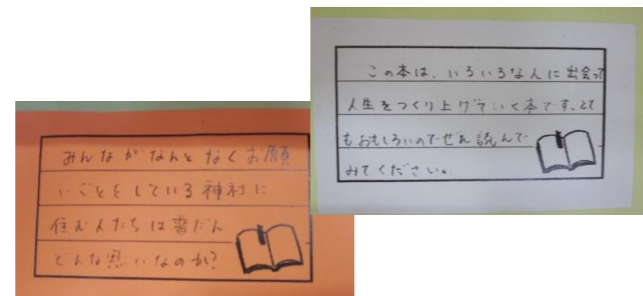 みんながなんとなくお願
いごとをしている神社に
住む人たちは普だん
どんな思いなのか?
この本は、いろいろな人に出会って
人生をつくり上げていく本です。とて
もおもしろいのでぜひ読んで
みてください。